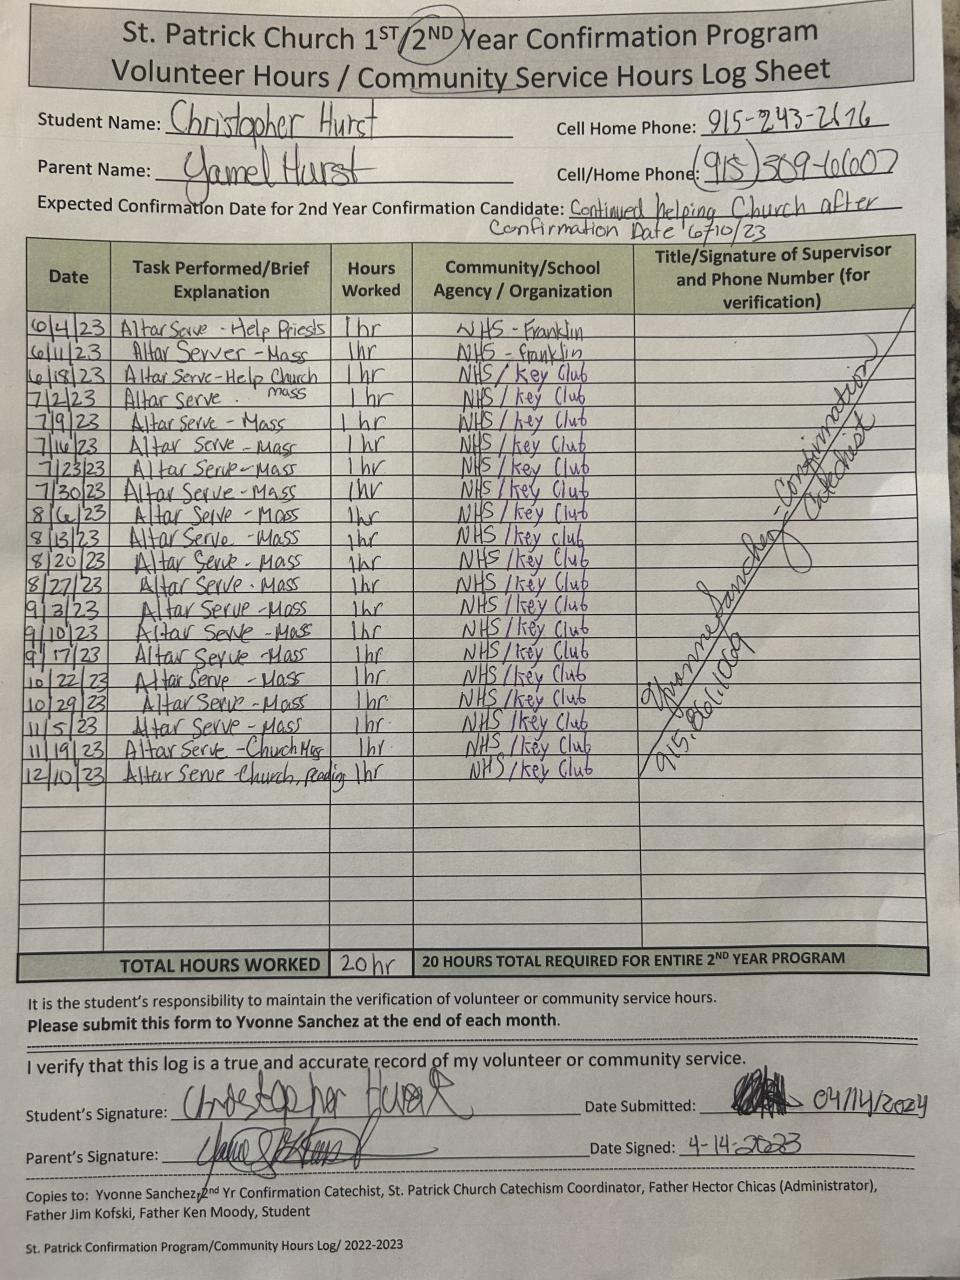 St. Patrick Church 1ST/2ND Year Confirmation Program
Volunteer Hours / Community Service Hours Log Sheet
Student Name: Christopher Hurst Cell Home Phone: 915-243-2676
Parent Name: Yamel Hurst Cell/Home Phone: (915)309-6607
Expected Confirmation Date for 2nd Year Confirmation Candidate: Continued helping Church after
Confirmation Date 6/10/23
Date Task Performed/Brief Explanation Hours Worked Community/School Agency / Organization Title/Signature of Supervisor and Phone Number (for verification)
6/4/23 Altar Serve - Help Priests 1hr NHS - Franklin
6/11/23 Altar Server - Mass 1hr NHS - Franklin
6/18/23 Altar Serve - Help Church 1hr NHS / Key Club
7/2/23 Altar Serve . mass 1hr NHS / Key Club
7/9/23 Altar Serve - Mass 1hr NHS / Key Club
7/16/23 Altar Serve - Mass 1hr NHS / Key Club
7/23/23 Altar Serve - Mass 1hr NHS / Key Club
7/30/23 Altar Serve - Mass 1hr NHS / Key Club
8/6/23 Altar Serve - Mass 1hr NHS / Key Club
8/13/23 Altar Serve - Mass 1hr NHS / Key club
8/20/23 Altar Serve - Mass 1hr NHS / Key Club
8/27/23 Altar Serve - Mass 1hr NHS / Key Club
9/3/23 Altar Serve - Mass 1hr NHS / Key Club
9/10/23 Altar Serve - Mass 1hr NHS / Key Club
9/17/23 Altar Serve - Mass 1hr NHS / Key Club
10/22/23 Altar Serve - Mass 1hr NHS / Key Club
10/29/23 Altar Serve - Mass 1hr NHS / Key Club
11/5/23 Altar Serve - Mass 1hr NHS / Key Club
11/19/23 Altar Serve - Chuch Mass 1hr NHS / Key Club
12/10/23 Altar Serve Church, Reading 1hr NHS / Key Club
Yvonne Sanchez - Confirmation
Catechist
915.861.1069
TOTAL HOURS WORKED 20 hr 20 HOURS TOTAL REQUIRED FOR ENTIRE 2ND YEAR PROGRAM
It is the student's responsibility to maintain the verification of volunteer or community service hours.
Please submit this form to Yvonne Sanchez at the end of each month.
I verify that this log is a true and accurate record of my volunteer or community service.
Student's Signature: Christopher Hurst Date Submitted: 04/14/2024
Parent's Signature: Date Signed: 4-14-2023
Copies to: Yvonne Sanchez, 2nd Yr Confirmation Catechist, St. Patrick Church Catechism Coordinator, Father Hector Chicas (Administrator),
Father Jim Kofski, Father Ken Moody, Student
St. Patrick Confirmation Program/Community Hours Log/ 2022-2023